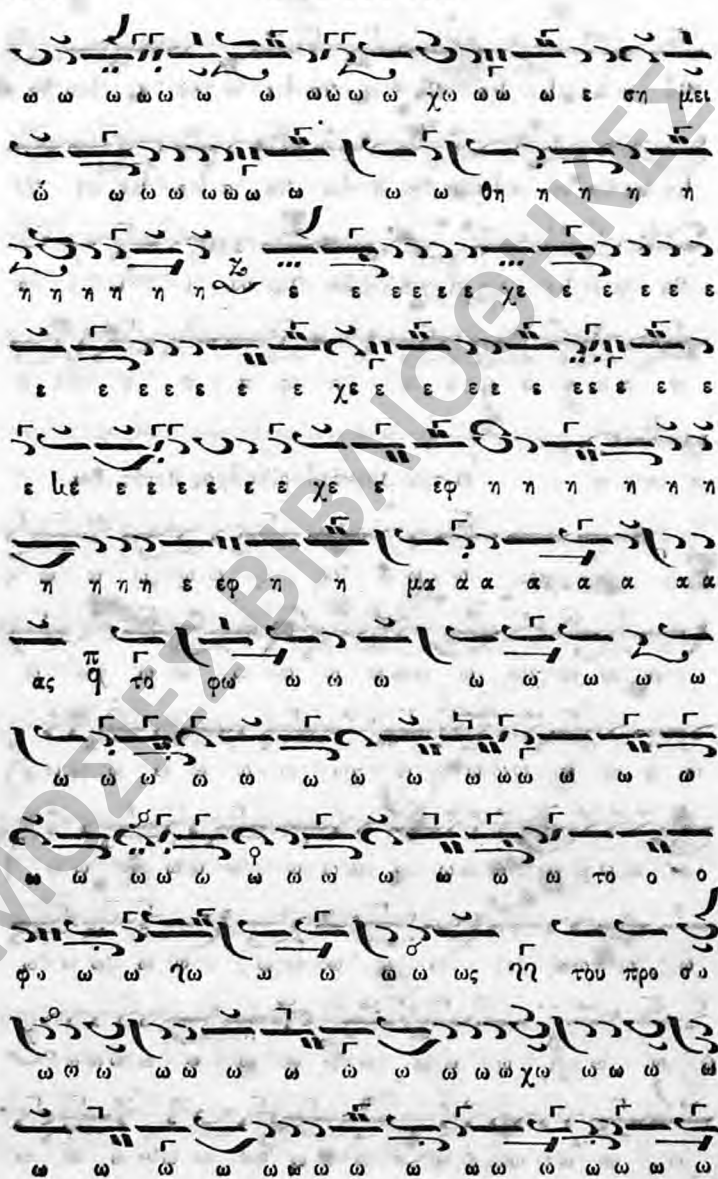 ω ω ω ω ω ω ω ω ω ω ω χω ω ω ω ε ση μει
ώ ω ω ω ω ω ω ω ω ω θη η η η ή
η η η η η η ε ε ε ε ε ε χε ε ε ε ε ε
ε ε ε ε ε ε ε ε χε ε ε ε ε ε ε ε ε ε ε
ε ε ε ε ε ε ε χε ε εφ η η η η η η
η η η η ε εφ η η μα α α α α α α α
ας π q το φω ω ω ω ω ω ω ω ω
ω ω ω ω ω ω ω ω ω ω ω ω ω
ω ω ω ω ω ω ω ω ω ω ω ω το ο ο
φω ω ω ω ω ω ω ως του προ σω
ω ω ω ω ω ω ω ω ω ω ω χω ω ω ω ω
ω ω ω ω ω ω ω ω ω ω ω ω ω ω ω ω
ΜΟΣΙΕΣ ΒΙΒΛΙΟΘΗΚΕΣ